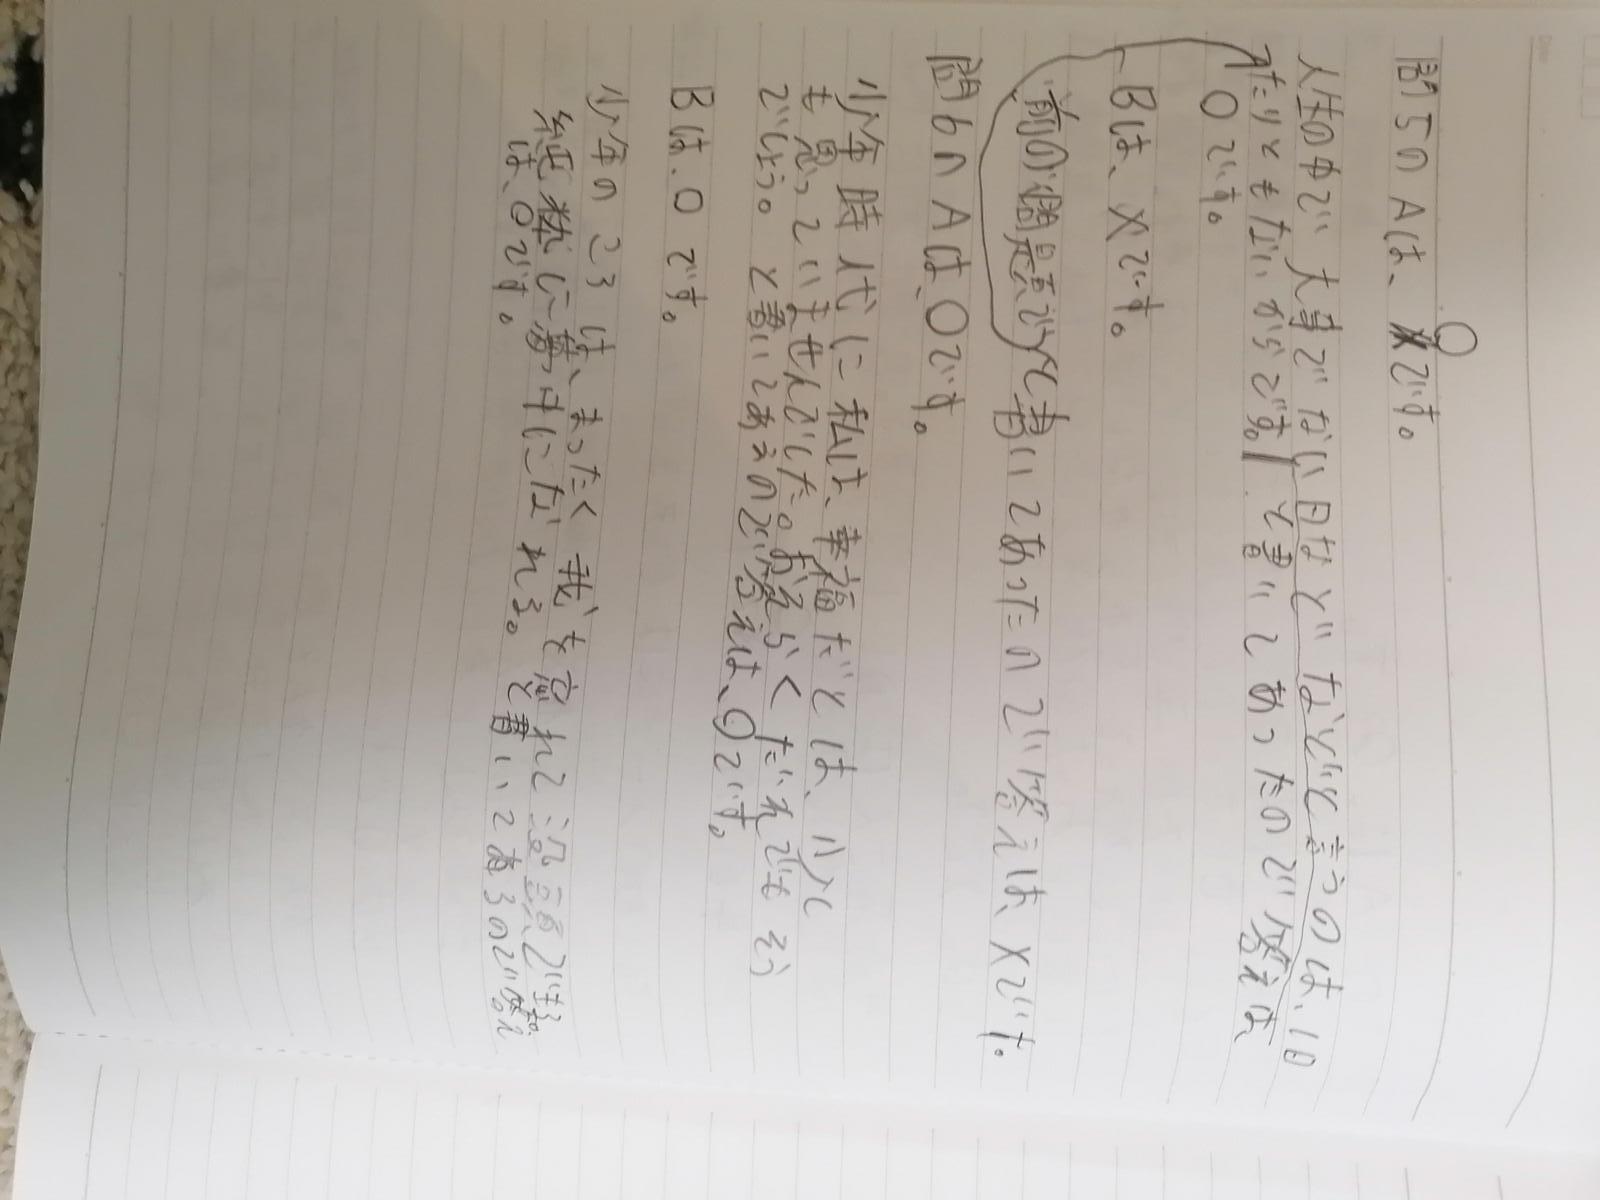 問5のAは、○です。
人生の中で大事でない日などなどと言うのは、1日
たりともないからです。」と書いてあったので答えは、
○です。
Bは、×です。
前の問題で、と書いてあったので答えは、×です。
問6のAは、○です。
少年時代に私は、幸福だとは、少し
も思っていませんでした。おそらくだれでもそう
でしょう。と書いてあるので答えは、○です。
Bは、○です。
少年のころは、まったく我を忘れて没頭できる。
純粋に夢っ中になれる。と書いてあるので答え
は、○です。